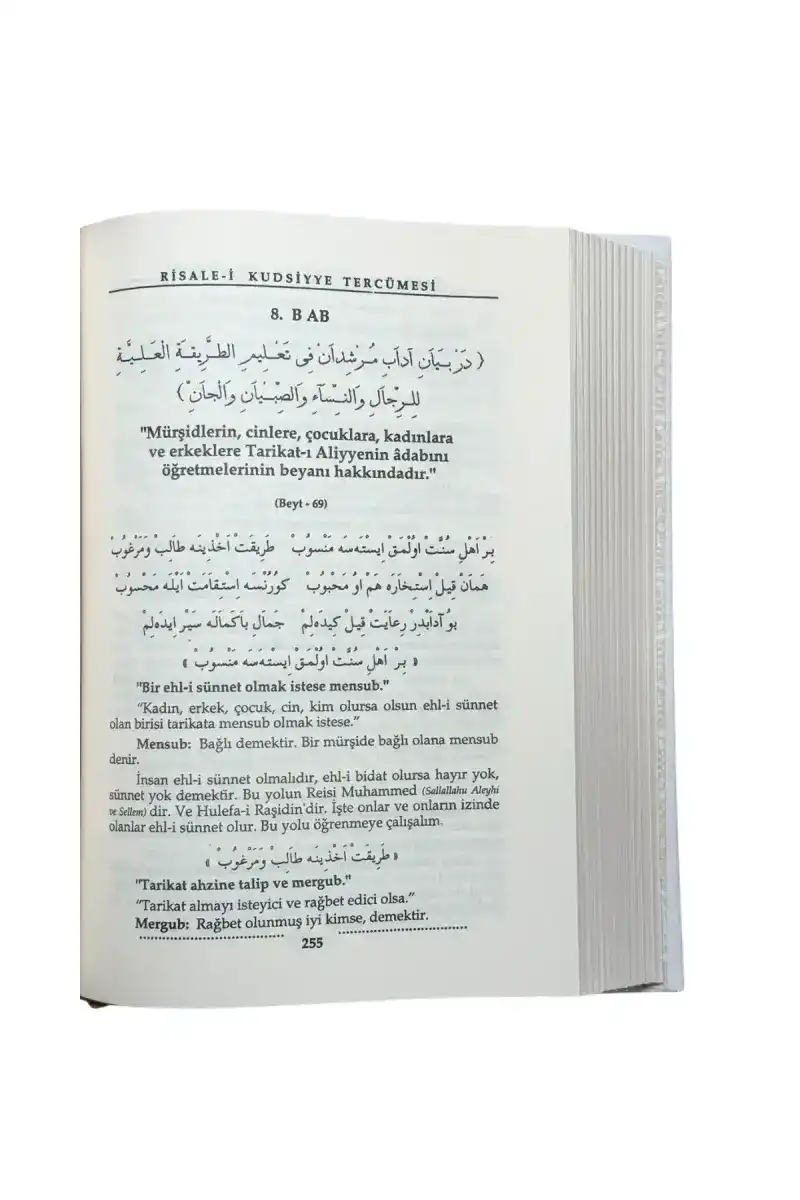 RİSALE-İ KUDSİYYE TERCÜMESİ
8. BAB
( دَرْ بَيَانِ آدَابِ مُرْشِدَانْ فِى تَعْلِيمِ الطَّرِيقَةِ الْعَلِيَّةِ
لِلرِّجَالِ وَالنِّسَآءِ وَالصِّبْيَانِ وَالْجَانّ )
"Mürşidlerin, cinlere, çocuklara, kadınlara
ve erkeklere Tarikat-ı Aliyyenin âdabını
öğretmelerinin beyanı hakkındadır."
(Beyt - 69)
بِرْ اَهْلِ سُنَّتْ اوُلْمَقْ اِيسْتَهسَه مَنْسُوبْ طَرِيقَتْ اَخْذِينَه طَالِبْ وَمَرْغُوبْ
هَمَانْ قِيلْ اِسْتِخَارَه هَمْ اوُ مَحْبُوبْ كوُرُنْسَه اِسْتِقَامَتْ اَيْلَه مَحْسُوبْ
بوُ آدَابْدِرْ رِعَايَتْ قِيلْ كِيدَهلِمْ جَمَالِ بَاكَمَالَه سَيْرْ اِيدَهلِمْ
« بِرْ اَهْلِ سُنَّتْ اوُلْمَقْ اِيسْتَهسَه مَنْسُوبْ »
"Bir ehl-i sünnet olmak istese mensub."
"Kadın, erkek, çocuk, cin, kim olursa olsun ehl-i sünnet
olan birisi tarikata mensub olmak istese."
Mensub: Bağlı demektir. Bir mürşide bağlı olana mensub
denir.
İnsan ehl-i sünnet olmalıdır, ehl-i bidat olursa hayır yok,
sünnet yok demektir. Bu yolun Reisi Muhammed (Sallallahu Aleyhi
ve Sellem) dir. Ve Hulefa-i Raşidin'dir. İşte onlar ve onların izinde
olanlar ehl-i sünnet olur. Bu yolu öğrenmeye çalışalım.
« طَرِيقَتْ اَخْذِينَه طَالِبْ وَمَرْغُوبْ »
"Tarikat ahzine talip ve mergub."
"Tarikat almayı isteyici ve rağbet edici olsa."
Mergub: Rağbet olunmuş iyi kimse, demektir.
255